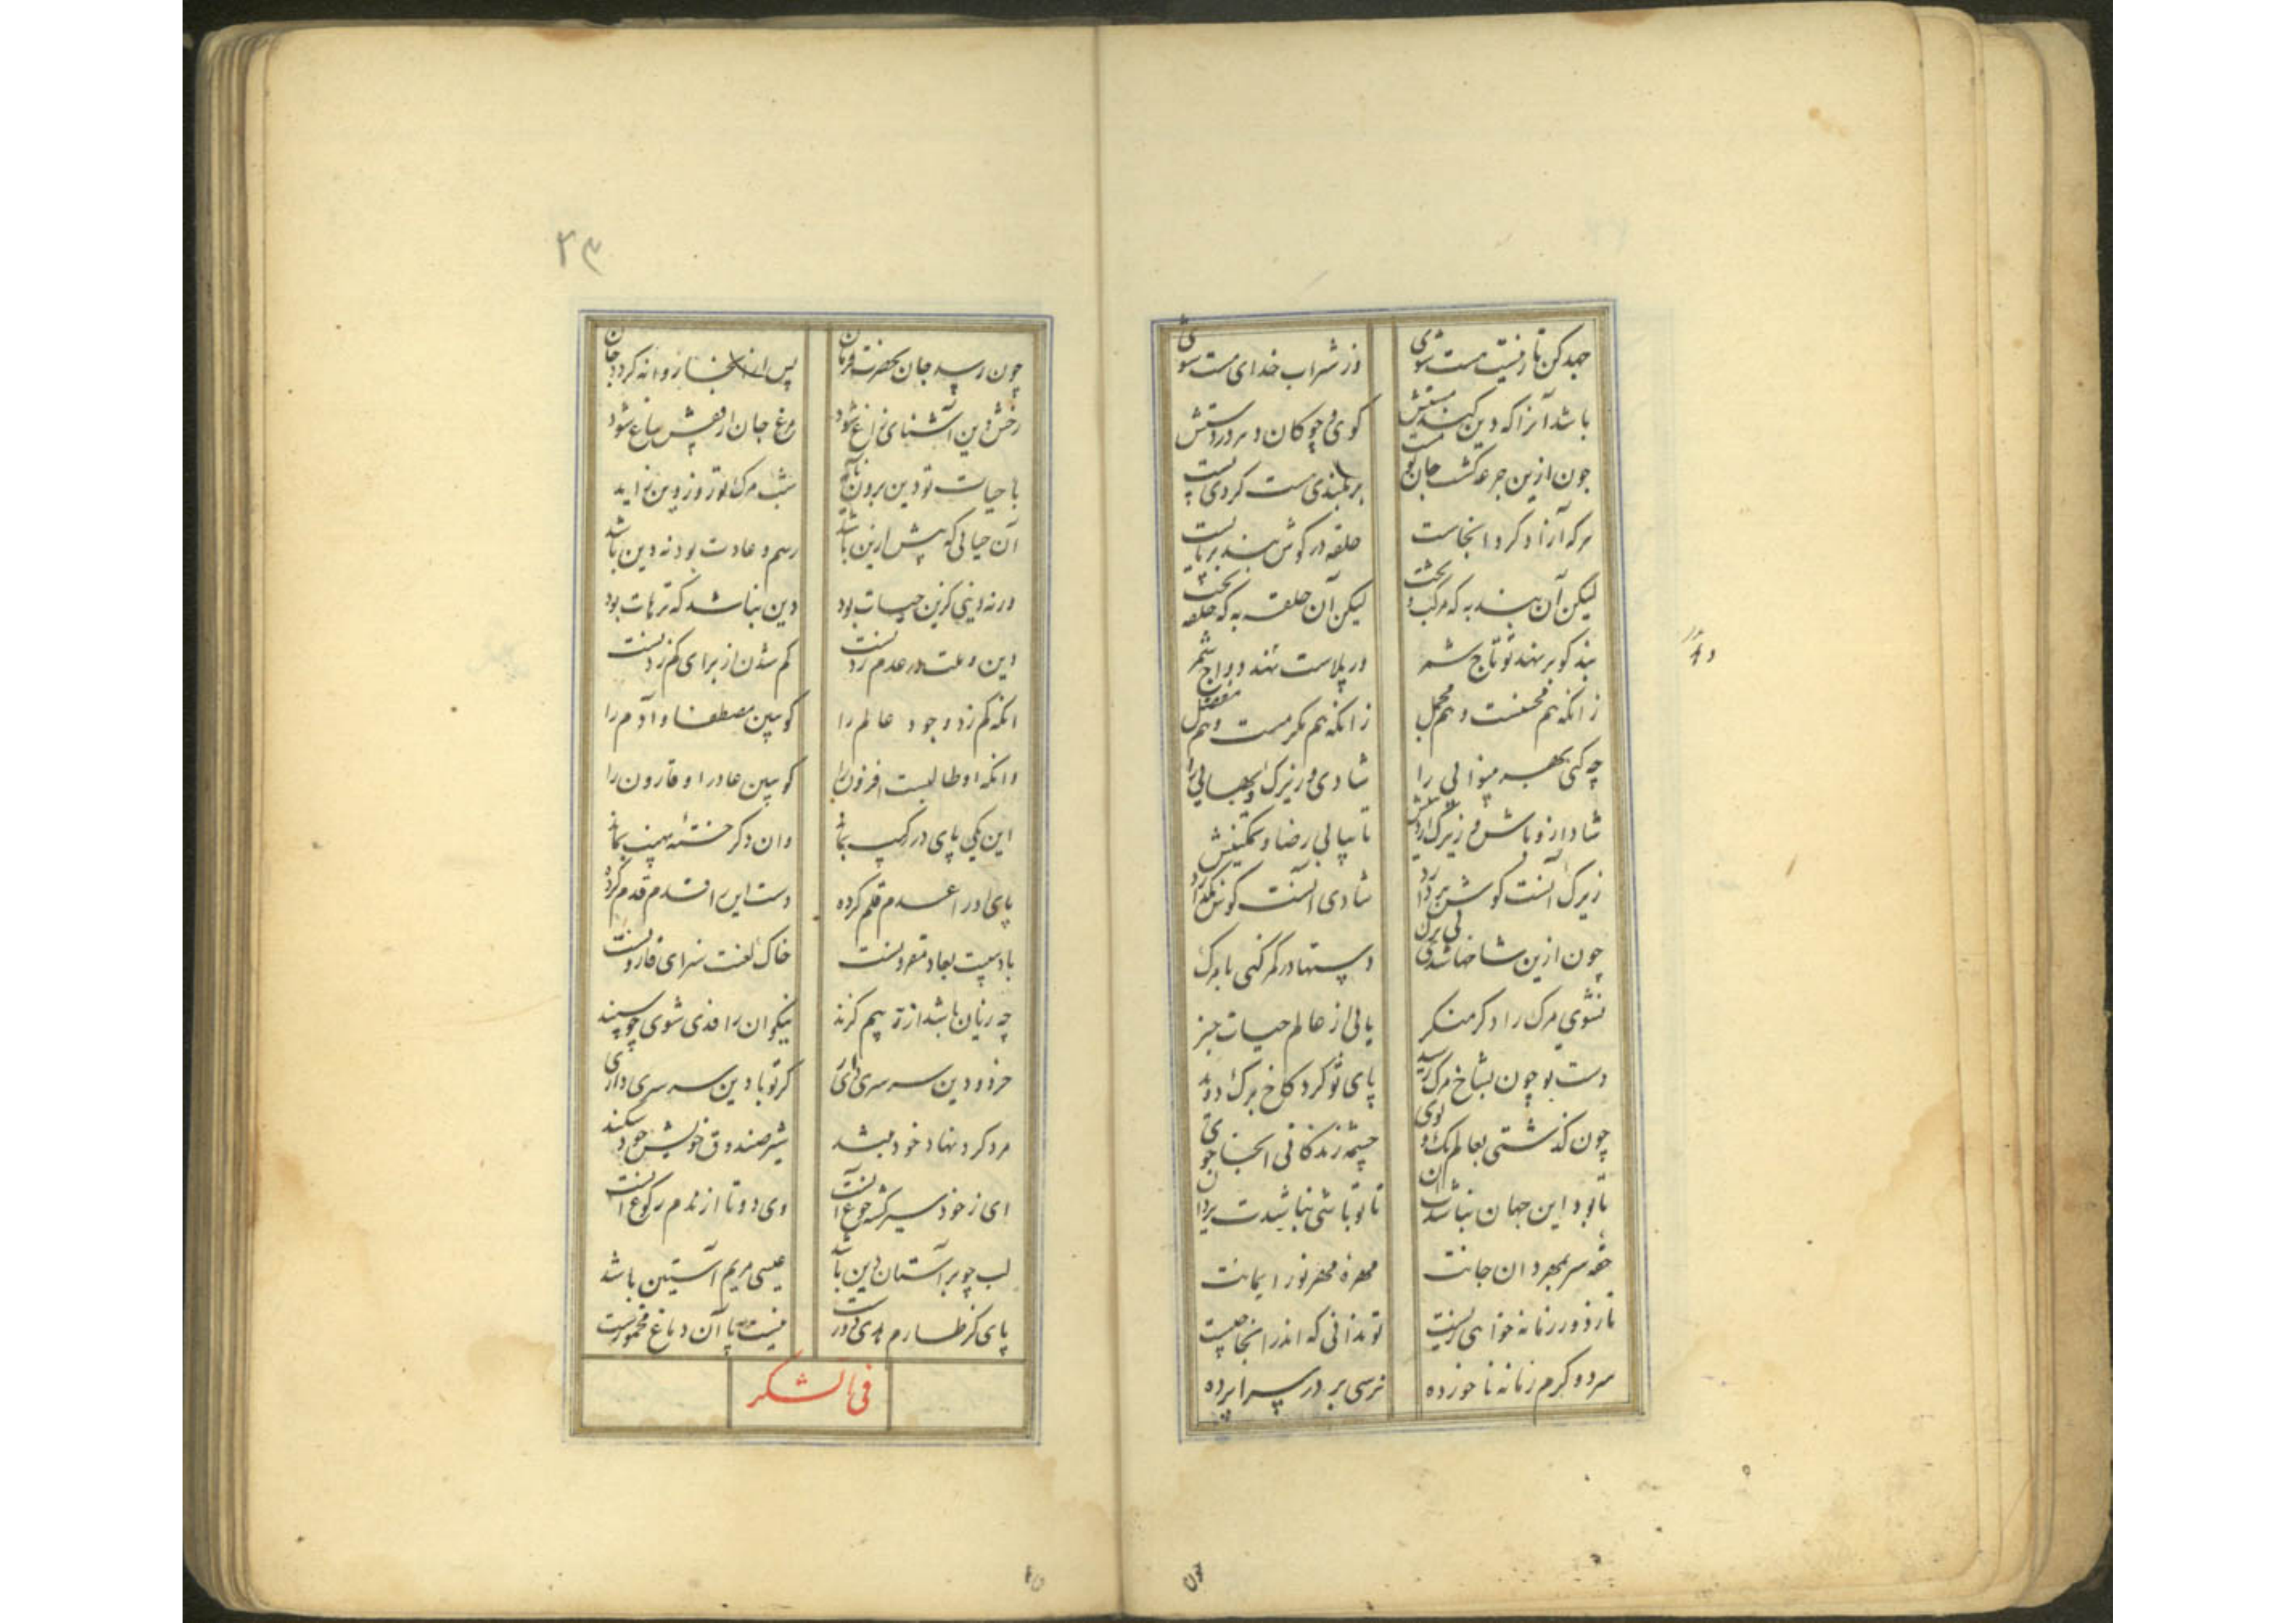 جهد کن تا ز نیست هست شوی
وز شراب خدای مست شوی
باشد آنرا که دین کند هستش
گوی و چوگان دهر در دستش
چون ازین جرعه گشت جان تو مست
بر بلندی هست گردی پست
هر که آزاد کرد آنجاست
حلقه در گوش بند بر پاست
لیکن آن بند به که مرکب بخت
لیکن آن حلقه به که حلقه تخت
بند کو بر نهد تو تاج شمر
ور پلاست نهد دواج شمر
زانکه هم محسنست و هم مجمل
زانکه هم مکرمست و هم مفضل
چه کنی بهر بینوایی را
شادی و زیرکی و بهایی را
شاد ازو باش و زیرک از دینش
تا بیابی رضا و تمکینش
زیرک آنست کوش بردارد
شادی آنست کوش نگذارد
چون ازین شاخها شدی بی برگ
دستها در کمر کنی با مرگ
نشوی مرگ را دگر منکر
یابی از عالم حیات خبر
دست تو چون بشاخ مرگ رسید
پای تو گرد کاخ برگ دوید
چون گذشتی بعالم تک و پوی
چشمه زندگانی آنجا جوی
تا بود این جهان نباشد آن
تا تو باشی نباشدت یزدان
حقه سر بمهر دان جانت
مهره مهر نور ایمانت
تا ز دور زمانه خواهی زیست
تو ندانی که اندر آنجا چیست
سرد و گرم زمانه ناخورده
نرسی بر در سراپرده
چون
۲۳
چون رسد جان بحضرت فرمان
پس از آنجا روانه گردد جان
رخش دین آشنای راغ شود
مرغ جان از قفس بباغ شود
با حیات تو دین برون ناید
شب مرگ تو روز دین زاید
آن حیاتی که پیش ازین باشد
رسم و عادت بود نه دین باشد
ورنه دینی کزین حیات بود
دین نباشد که ترهات بود
دین و دولت در عدم زدنست
کم شدن از برای کم زدنست
آنکه کم زد وجود عالم را
گو ببین مصطفا و آدم را
وانکه او طالبست افزون را
گو ببین عاد را و قارون را
این یکی پای در رکیب بماند
وان دگر خسته نهیب بماند
پای او را عدم قلم کرده
دست این را ندم قدم کرده
باد هیبت بعاد مقرونست
خاک لعنت سزای قارونست
چه زیان باشد ار ز بیم گزند
نیکوان را فدی شوی چو سپند
خرد و دین سرسری داری
گر تو با دین سر سری داری
مرد گرد نهاد خود نبُد
شیر صندوق خویش خود شکند
ای ز خود سیر گشته جوع آنست
وی دو تا از ندم رکوع آنست
لب چو بر آستان دین باشد
عیسی مریم آستین باشد
پای کز طارم هدی دورست
نیست پا آن دماغ مخمورست
فی الشکر